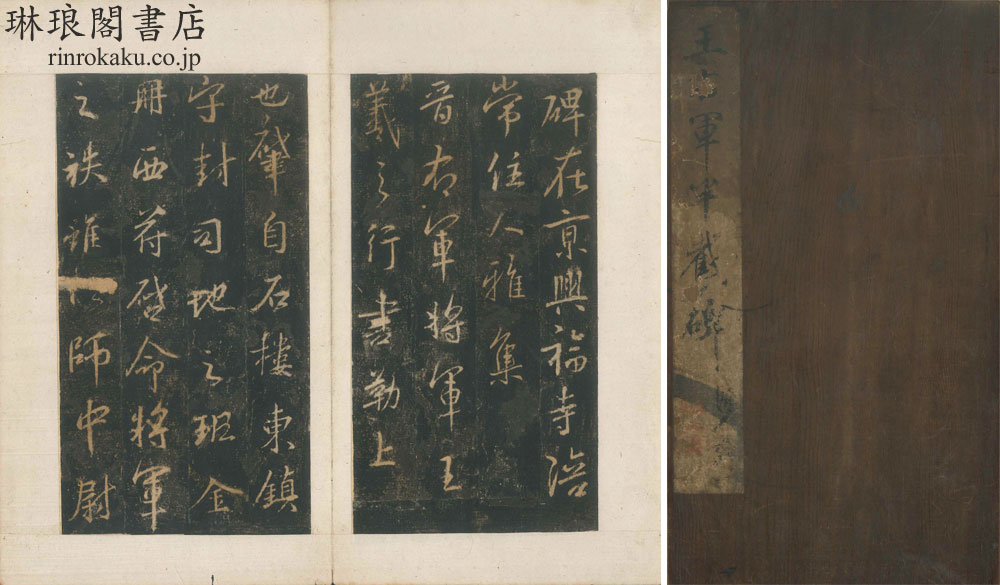 琳琅閣書店
rinrokaku.co.jp
碑在京興福寺陪
常住人雅集
晉右軍將軍王
羲之行書勒上
也肇自石樓東鎮
字封司地之班金
冊西苻啓命將軍
之袟雖師中尉
王右軍半截碑